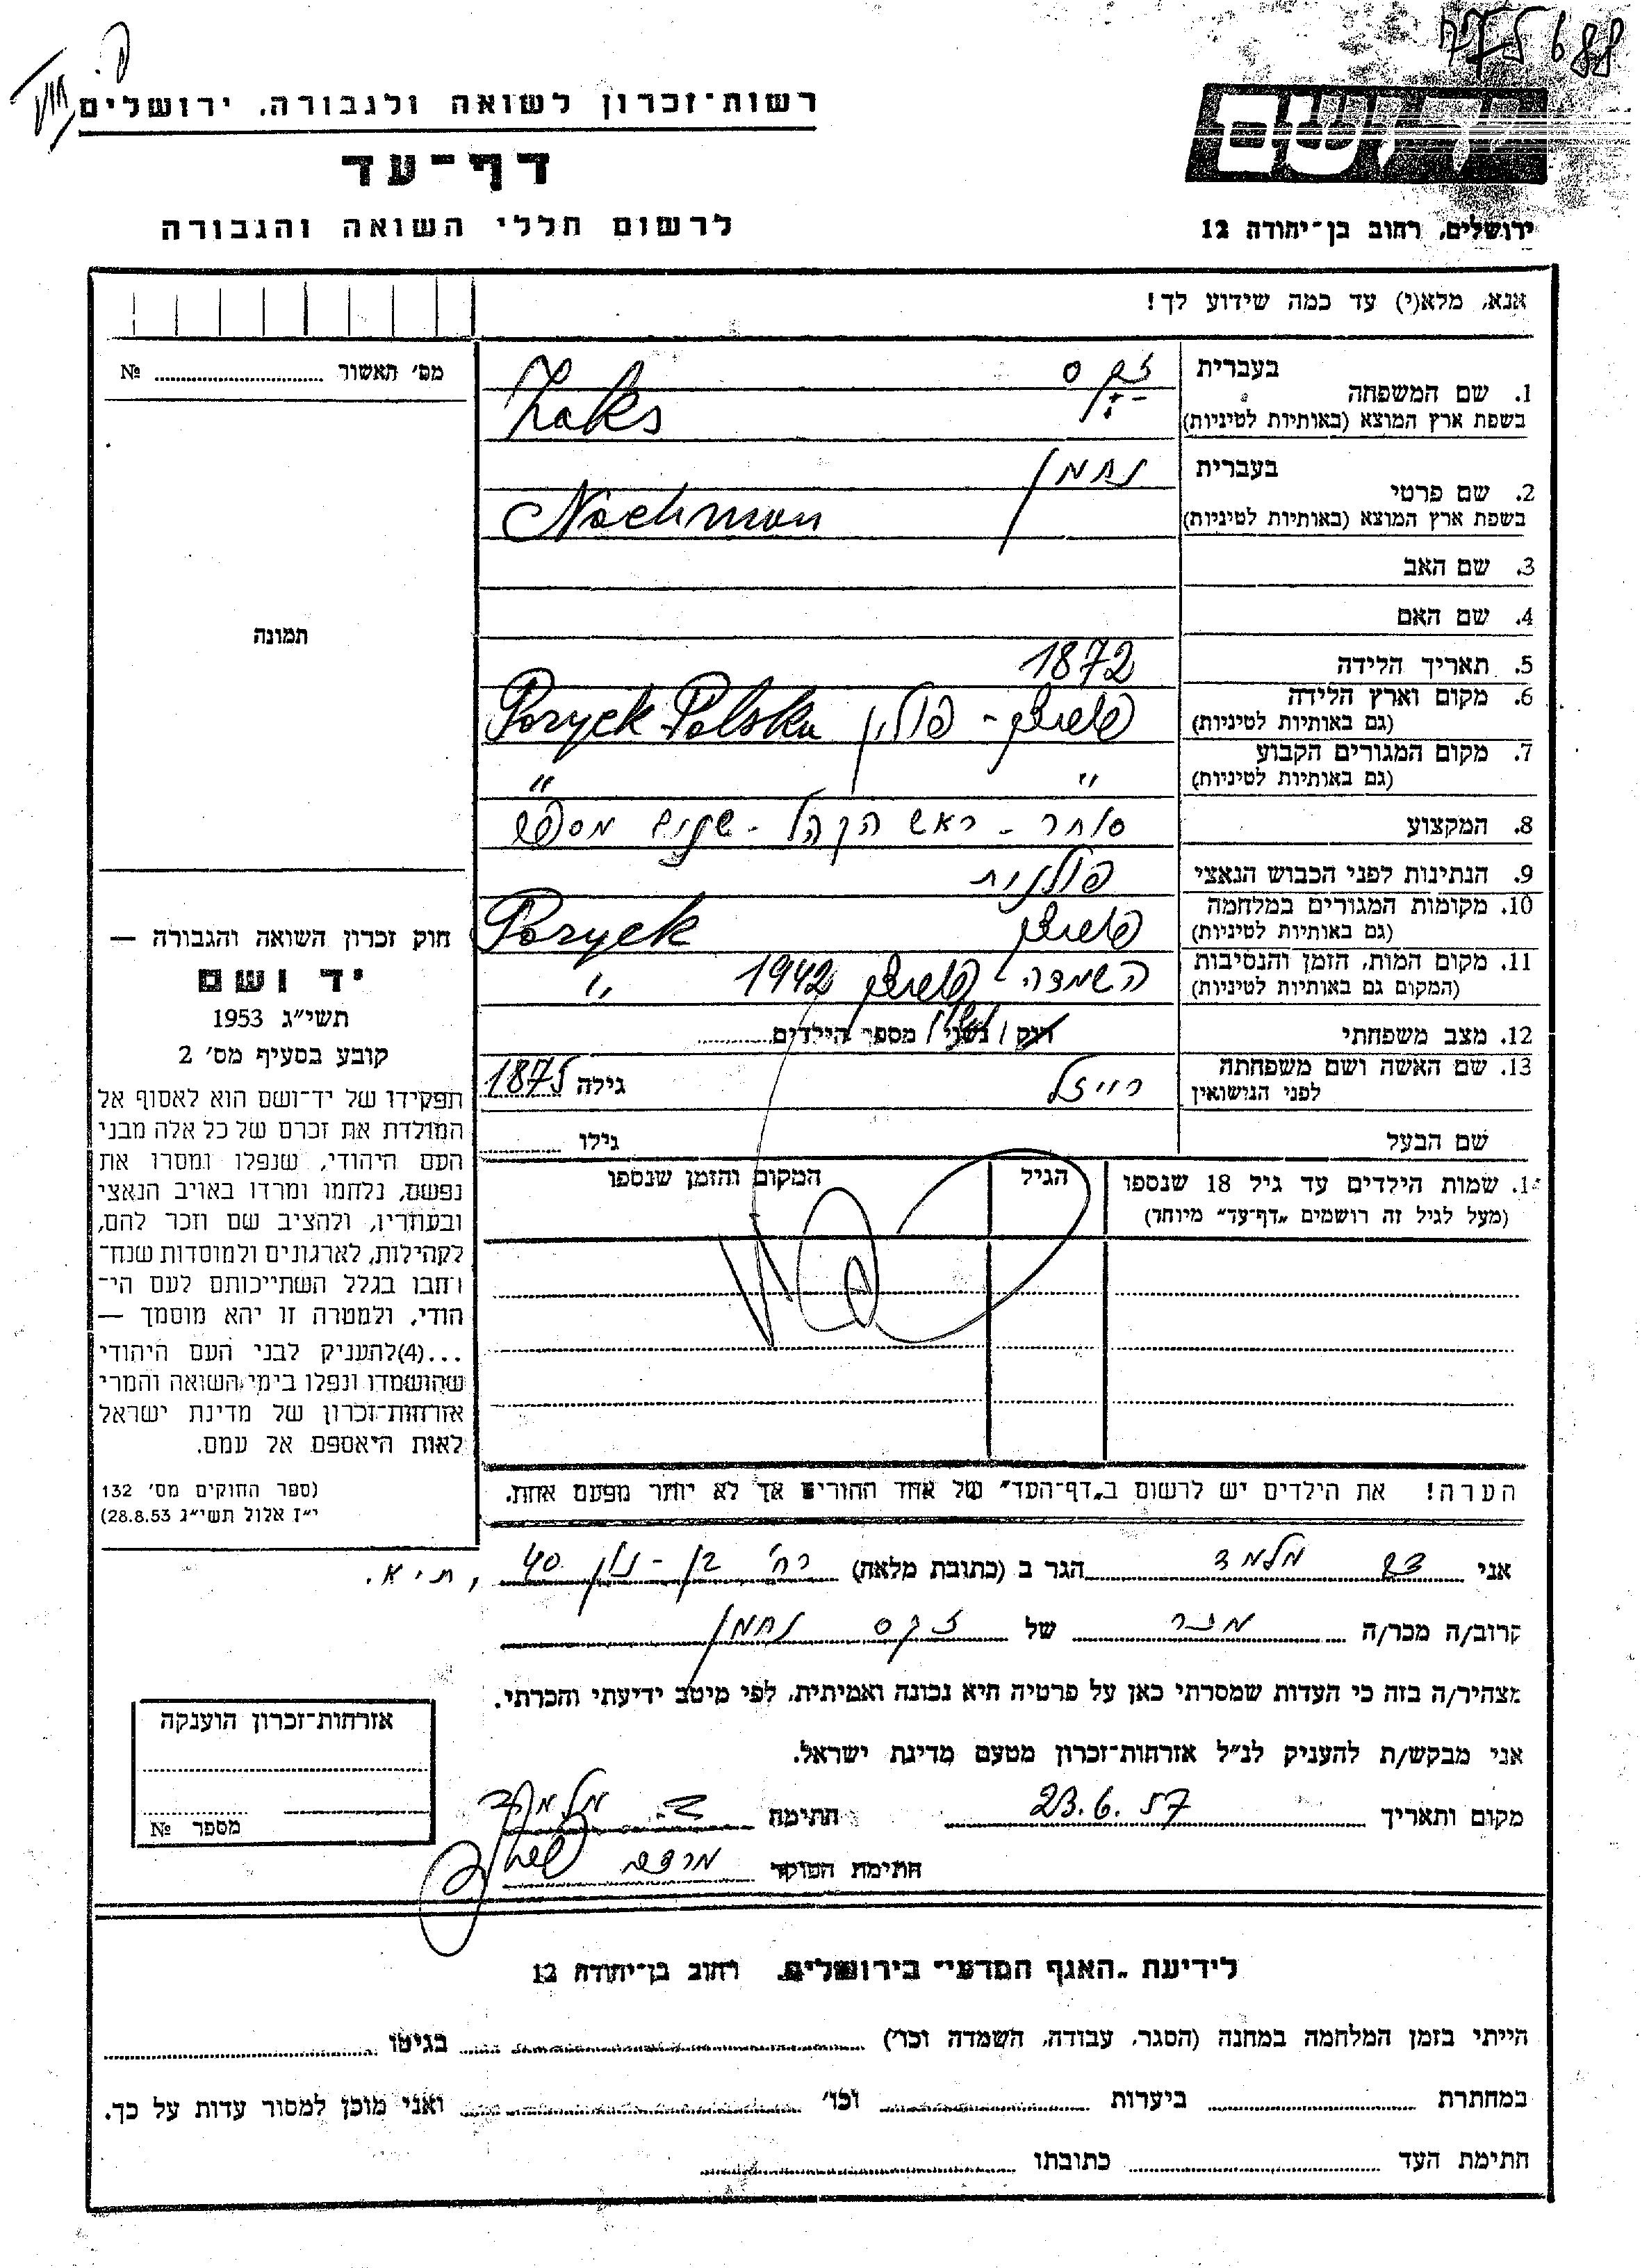 רשות־זכרון לשואה ולגבורה, ירושלים
דף־עד
לרשום חללי השואה והגבורה
יד ושם
ירושלים, רחוב בן־יהודה 12
אנא, מלא(י) עד כמה שידוע לך!
מס׳ האשור № 
תמונה
1. שם המשפחה
בעברית זקס
בשפת ארץ המוצא (באותיות לטיניות) Zaks
2. שם פרטי
בעברית נחמן
בשפת ארץ המוצא (באותיות לטיניות) Nachman
3. שם האב
4. שם האם
5. תאריך הלידה 1872
6. מקום וארץ הלידה
(גם באותיות לטיניות) פוריצק - פולין Poryck Polska
7. מקום המגורים הקבוע
(גם באותיות לטיניות) " "
8. המקצוע סוחר - ראש הקהל -
9. הנתינות לפני הכבוש הנאצי פולנית
10. מקומות המגורים במלחמה
(גם באותיות לטיניות) פוריצק Poryck
11. מקום המות, הזמן והנסיבות
(המקום גם באותיות לטיניות) השמדה - פוריצק 1942 "
12. מצב משפחתי רוק / נשוי / מספר הילדים
13. שם האשה ושם משפחתה
לפני הנישואין רייזל גילה 1875
שם הבעל גילו
14. שמות הילדים עד גיל 18 שנספו
(מעל לגיל זה רושמים „דף־עד” מיוחד)
הגיל
המקום והזמן שנספו
הערה! את הילדים יש לרשום ב„דף־העד” של אחד ההורים אך לא יותר מפעם אחת.
חוק זכרון השואה והגבורה —
יד ושם
תשי״ג 1953
קובע בסעיף מס׳ 2
תפקידו של יד־ושם הוא לאסוף אל
המולדת את זכרם של כל אלה מבני
העם היהודי, שנפלו ומסרו את
נפשם, נלחמו ומרדו באויב הנאצי
ובעוזריו, ולהציב שם וזכר להם,
לקהילות, לארגונים ולמוסדות שנח־
רחבו בגלל השתייכותם לעם הי־
הודי, ולמטרה זו יהא מוסמך —
...(4) להעניק לבני העם היהודי
שהושמדו ונפלו בימי השואה והמרי
אזרחות־זכרון של מדינת ישראל
לאות היאספם אל עמם.
(ספר החוקים מס׳ 132
י״ז אלול תשי״ג 28.8.53)
אני מלמד הגר ב (כתובת מלאה) רח׳ בן-נון 40, ת״א.
קרוב/ה מכר/ה מכר של זקס נחמן
מצהיר/ה בזה כי העדות שמסרתי כאן על פרטיה היא נכונה ואמיתית, לפי מיטב ידיעתי והכרתי.
אני מבקש/ת להעניק לנ״ל אזרחות־זכרון מטעם מדינת ישראל.
מקום ותאריך 23.6.57 חתימה מלמד
חתימת הפוקד מרדכי
אזרחות־זכרון הוענקה
מספר №
לידיעת „האגף המדעי” בירושלים, רחוב בן־יהודה 12
הייתי בזמן המלחמה במחנה (הסגר, עבודה, השמדה וכו׳) בגיטו
במחתרת ביערות וכו׳ ואני מוכן למסור עדות על כך.
חתימת העד כתובתו